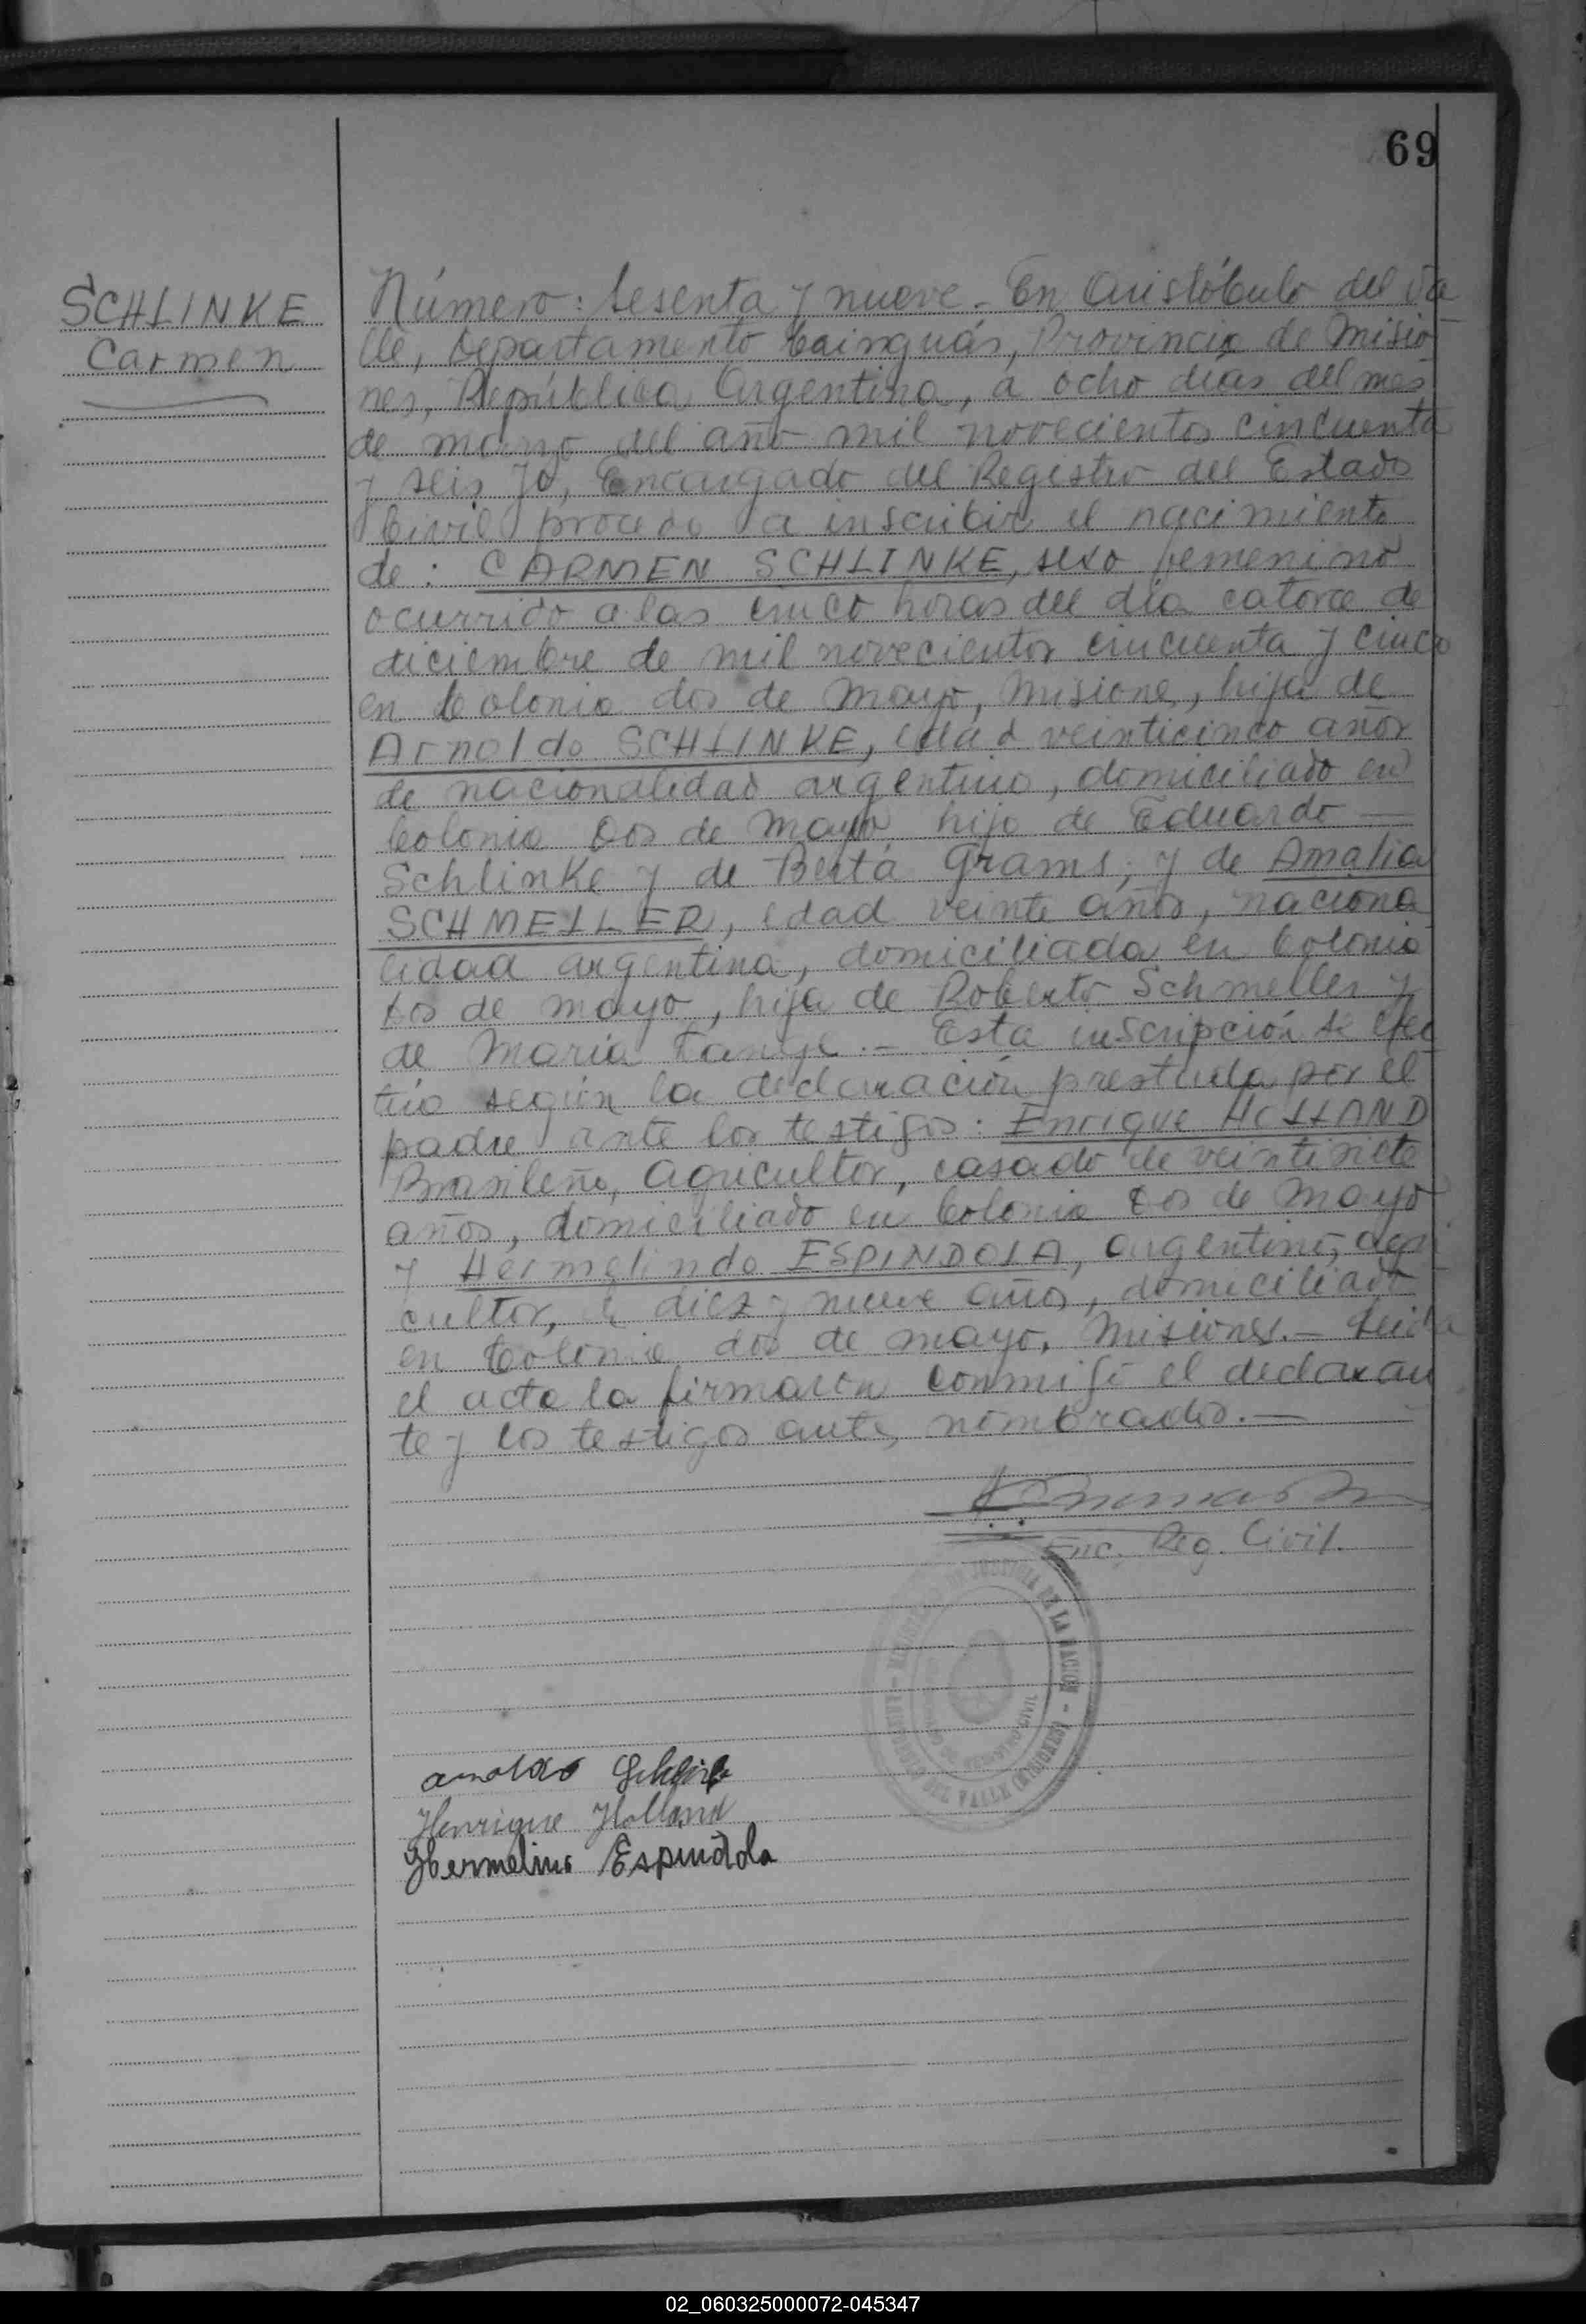 69
SCHLINKE
Carmen
Número: Sesenta y nueve.- En Aristóbulo del Va
lle, Departamento Cainguás, Provincia de Misio
nes, República Argentina, a ocho dias del mes
de mayo del año mil novecientos cincuenta
y seis Yo, Encargado del Registro del Estado
Civil procedo a inscribir el nacimiento
de: CARMEN SCHLINKE, sexo femenino
ocurrido a las cinco horas del día catorce de
diciembre de mil novecientos cincuenta y cinco
en Colonia dos de Mayo, Misione, hija de
Arnoldo SCHLINKE, edad veinticinco años
de nacionalidad argentino, domiciliado en
Colonia Dos de Mayo hijo de Eduardo —
Schlinke y de Berta Grams; y de Amalia
SCHMELLER, edad veinte años, naciona
lidad argentina, domiciliada en Colonia
Dos de mayo, hija de Roberto Schmeller y
de Maria .- Esta inscripción se efec
túa según la declaración prestada por el
padre ante los testigos: Enrique HOLLAND
Brasileño, agricultor, casado de veintisiete
años, domiciliado en Colonia Dos de Mayo
y Hermelindo ESPINDOLA, argentino, agri
cultor, de diez y nueve años, domiciliado
en Colonia dos de mayo, Misiones.- Leida
el acta la firmaron conmigo el declaran
te y los testigos antes nombrados.—
Enc. Reg. Civil.
JUSTICIA DE LA NACION - REGISTRO CIVIL - DEL VALLE (MISIONES)
arnoldo
Henrique Holland
Hermelino Espindola
02_060325000072-045347